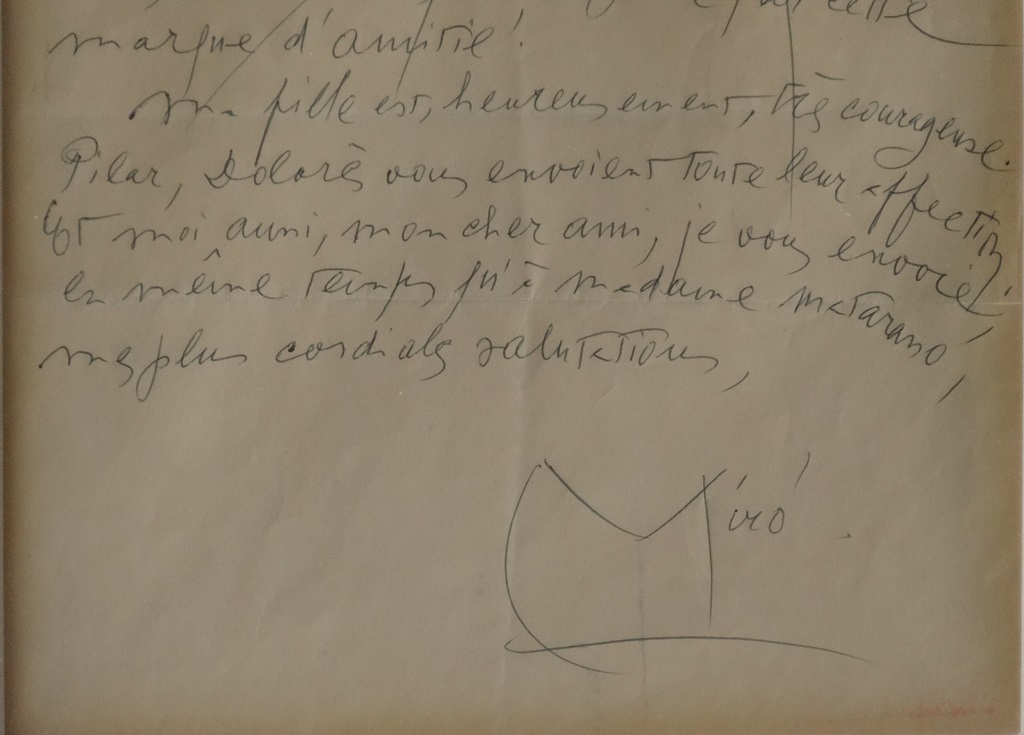 cette
marque d'amitié!
Ma fille est, heureusement, très courageuse.
Pilar, Dolorès vous envoient toute leur affection.
Et moi aussi, mon cher ami, je vous envoie,
en même temps qu'à madame Matarasso,
mes plus cordiales salutations,
Miró.